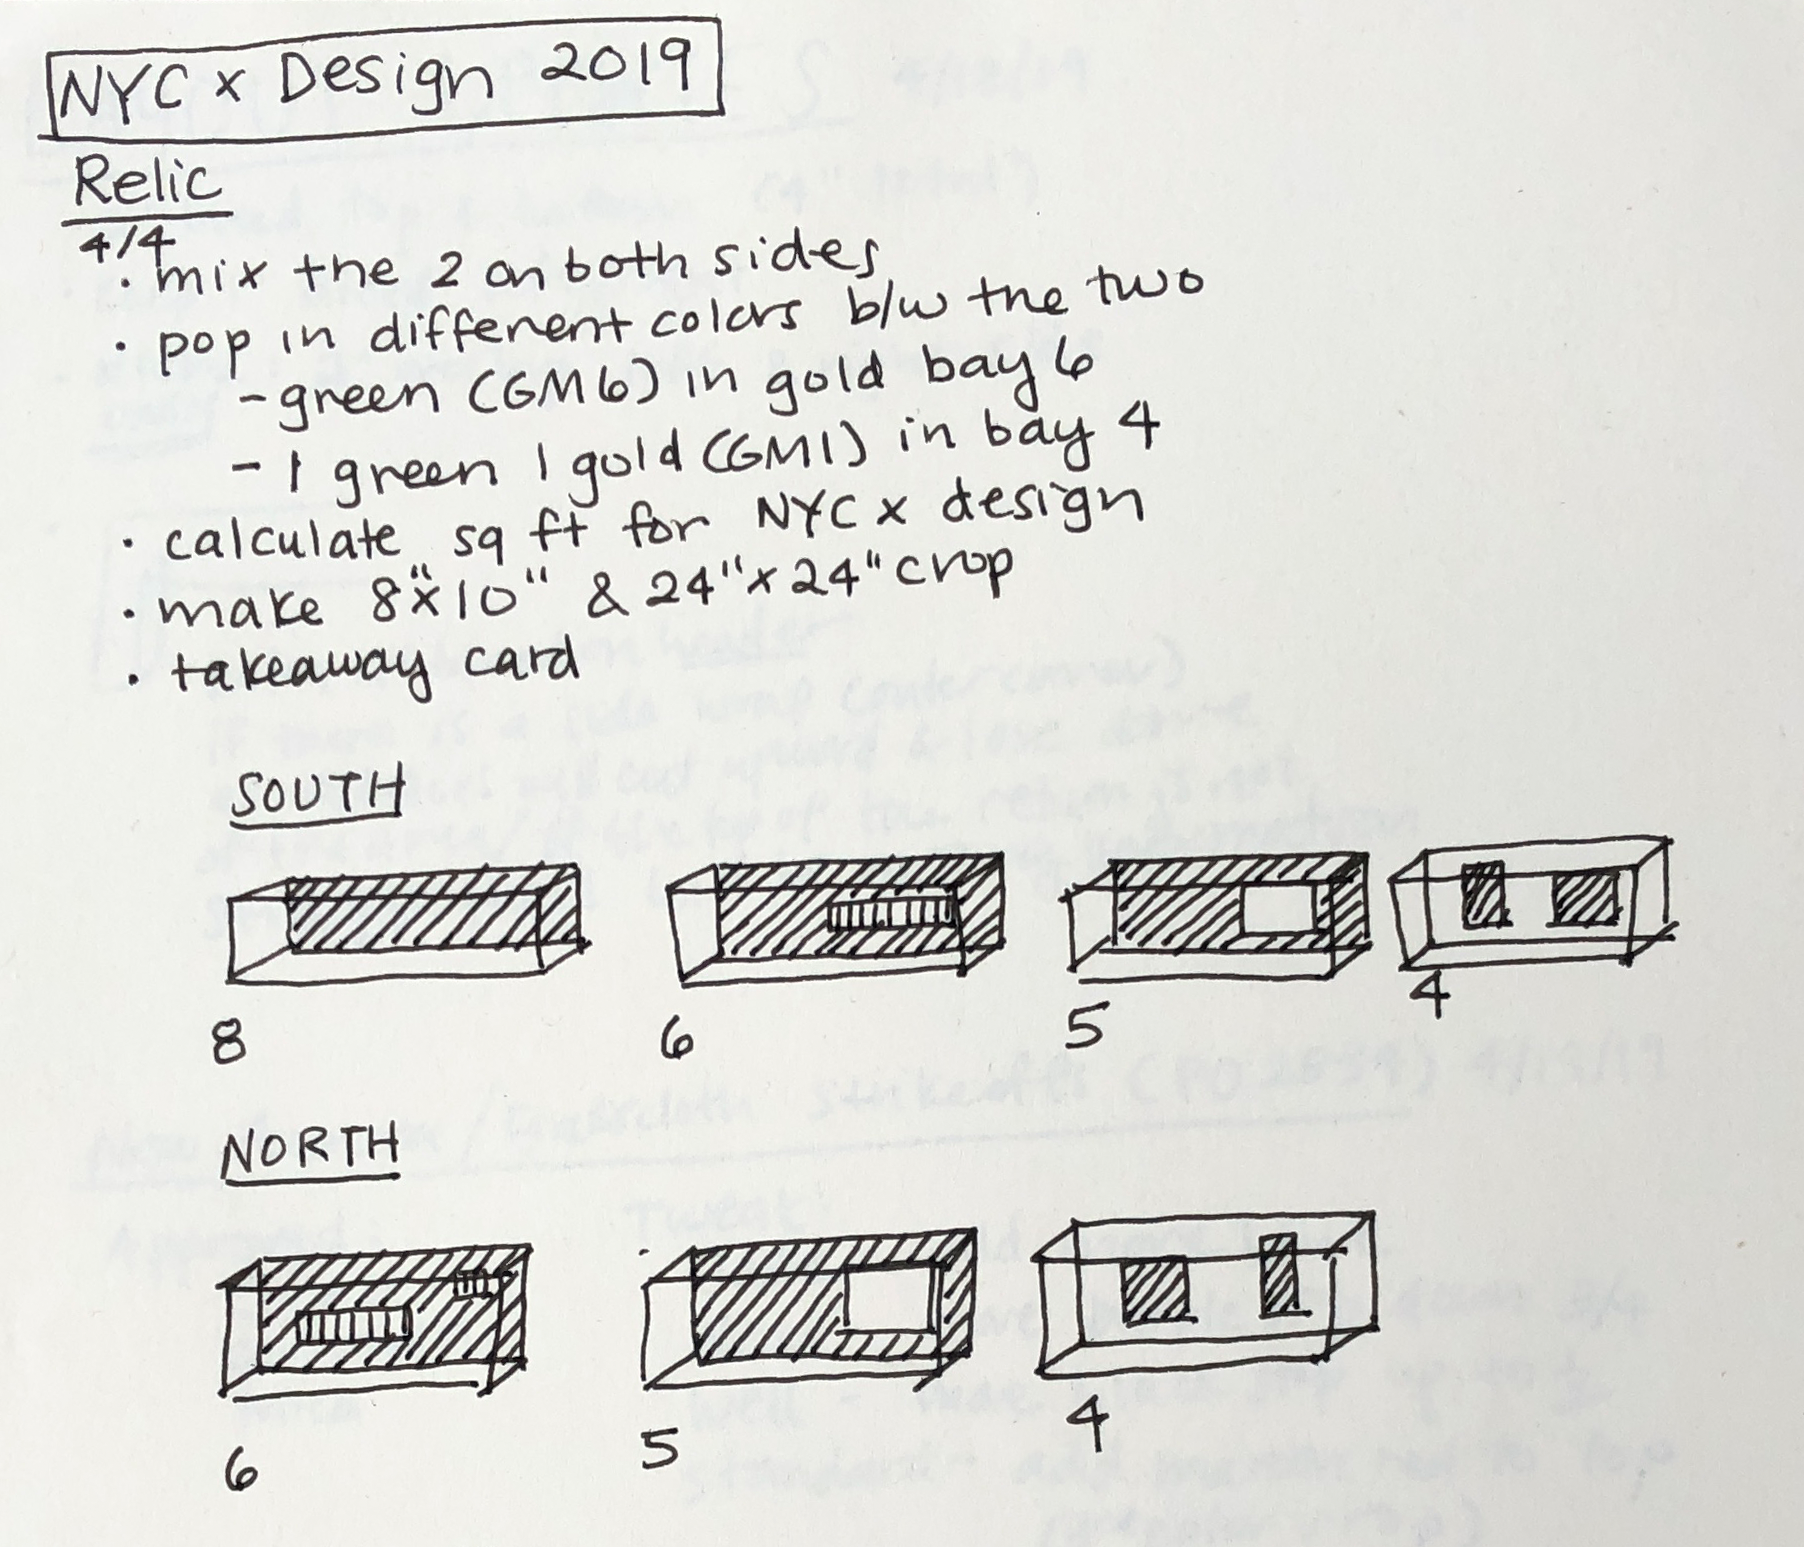 NYC x Design 2019
Relic
4/4
· mix the 2 on both sides
· pop in different colors b/w the two
- green (GM6) in gold bay 6
- 1 green 1 gold (GM1) in bay 4
· calculate sq ft for NYC x design
· make 8"x10" & 24"x24" crop
· takeaway card
SOUTH
8 6 5 4
NORTH
6 5 4